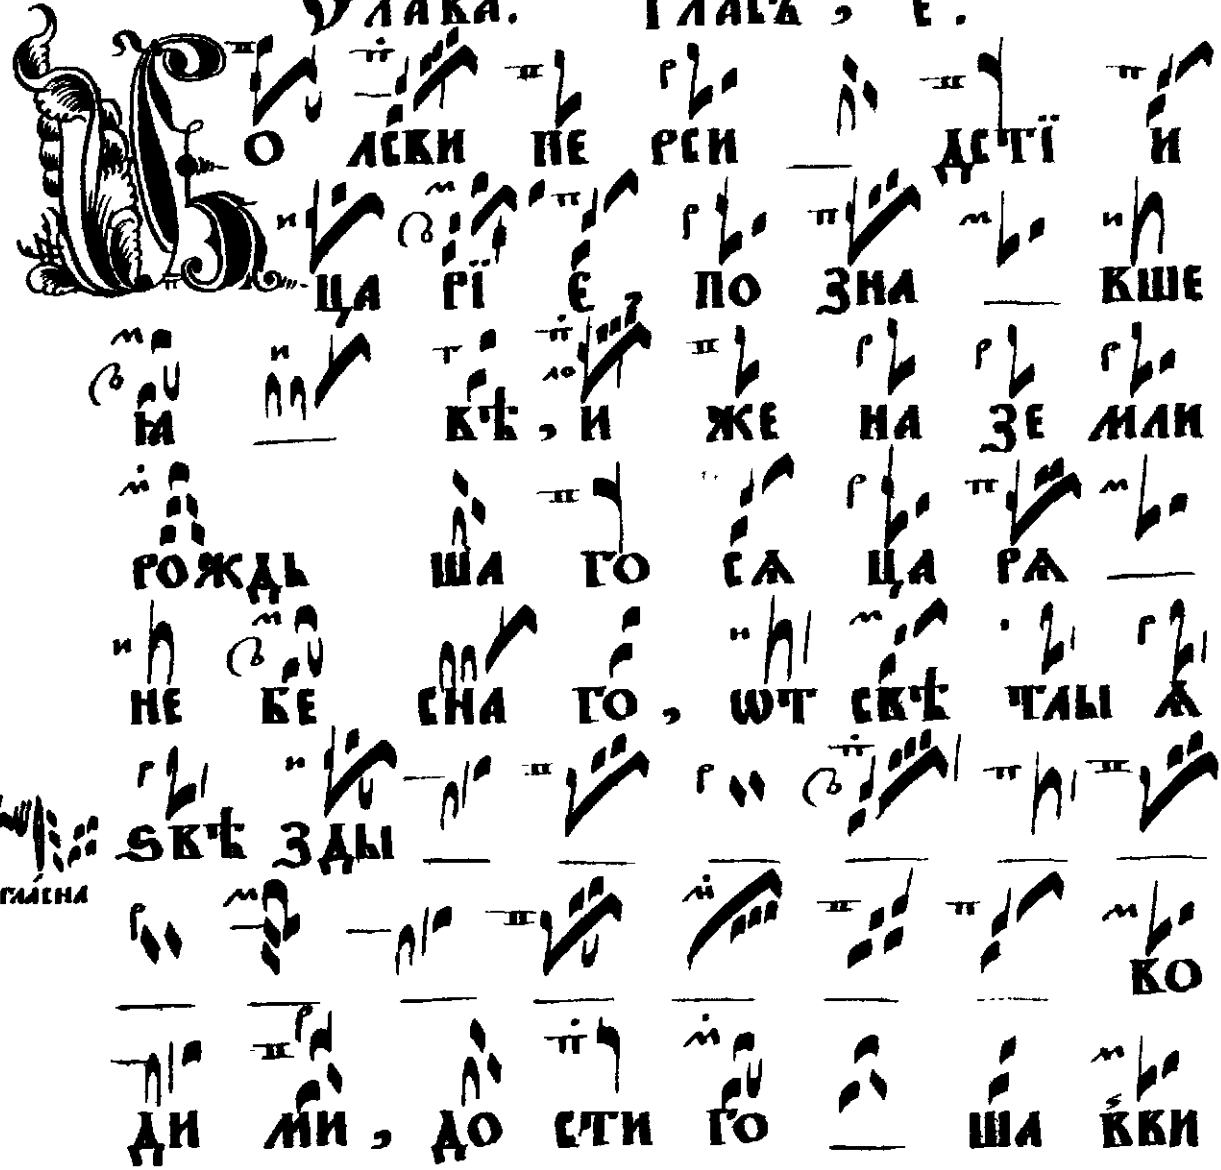 Слава. Гласъ, є.
Во лсви пе рси дстї и
ца рї є по зна вше
ꙗ вѣ, и же на зе мли
рождь ша го сѧ ца рѧ
не бе сна го, ѿт свѣ тлы ѧ
ѕвѣ зды
гла́сна
во
ди ми, до сти го ша вви